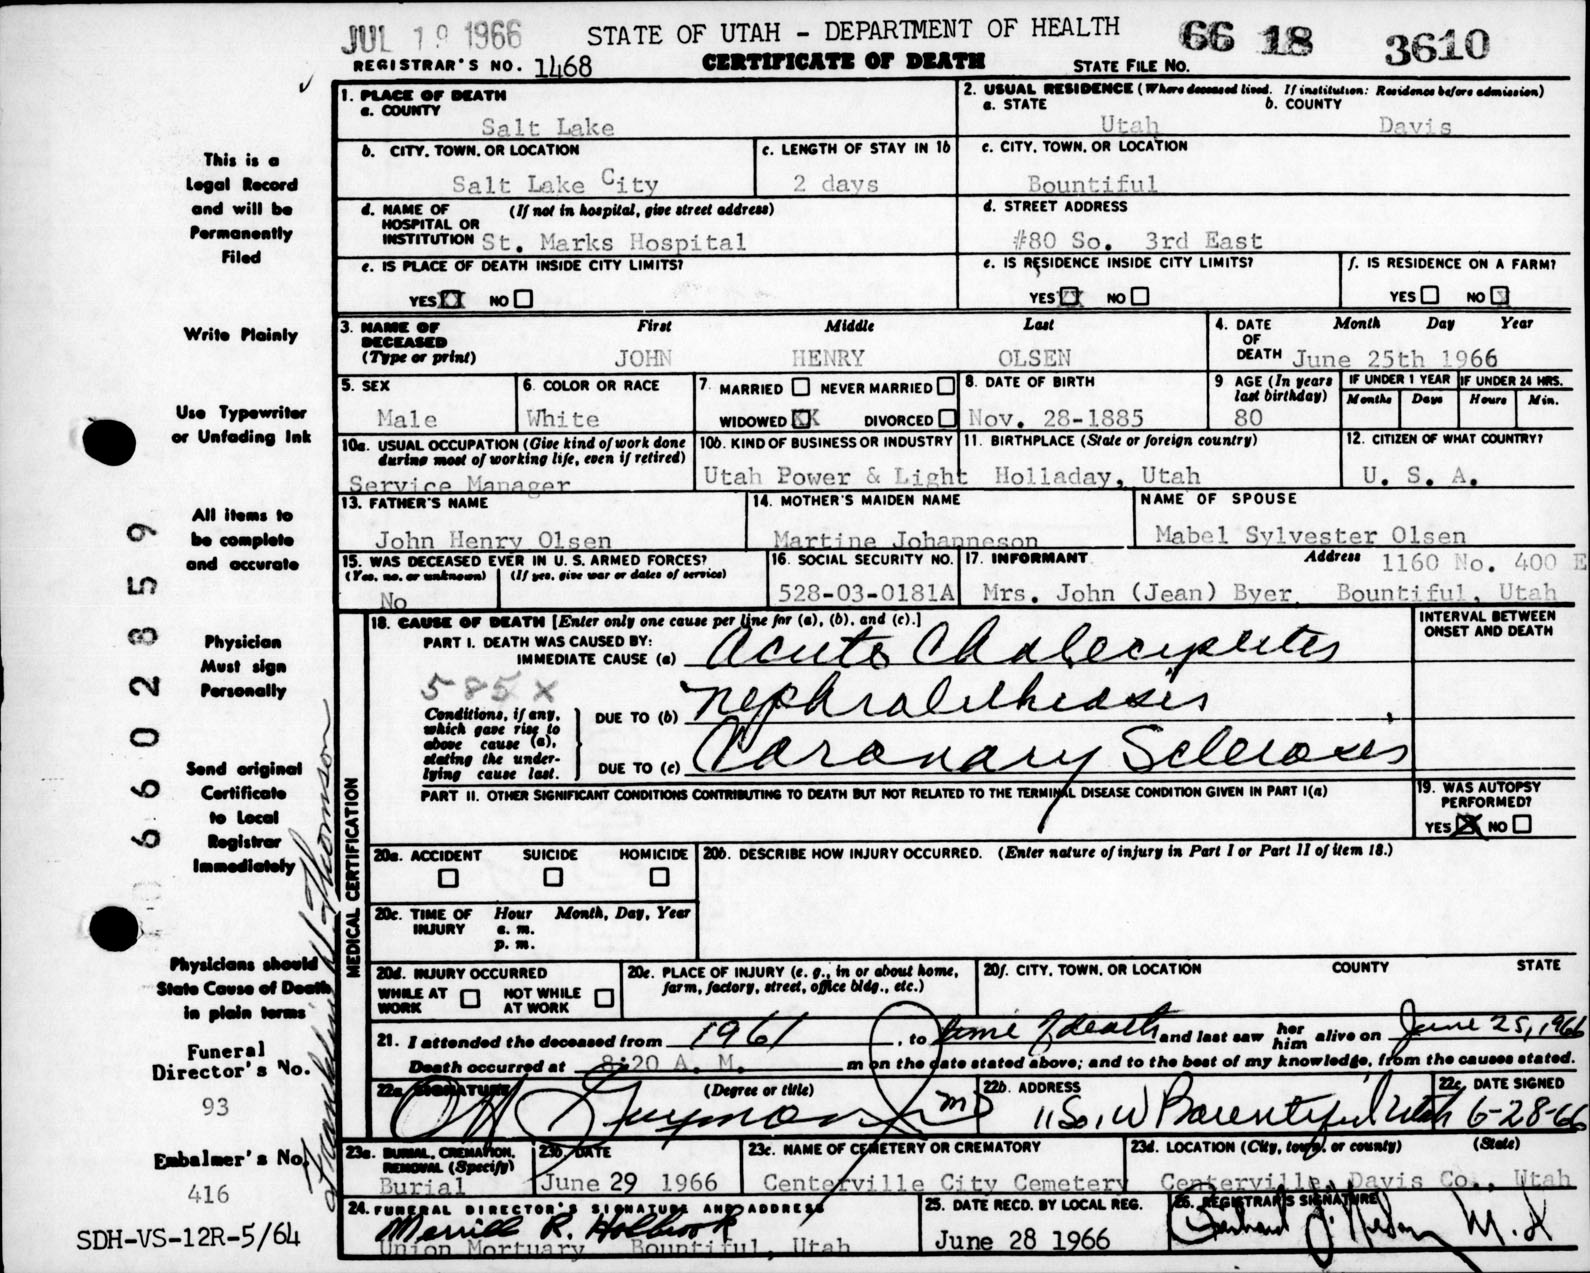 JUL 19 1966 STATE OF UTAH - DEPARTMENT OF HEALTH 66 18 3610
REGISTRAR'S NO. 1468 CERTIFICATE OF DEATH STATE FILE NO.
This is a
Legal Record
and will be
Permanently
Filed
Write Plainly
Use Typewriter
or Unfading Ink
All items to
be complete
and accurate
Physician
Must sign
Personally
Send original
Certificate
to Local
Registrar
Immediately
Physicians should
State Cause of Death
in plain terms
Funeral
Director's No.
93
Embalmer's No.
416
SDH-VS-12R-5/64
1. PLACE OF DEATH
a. COUNTY
Salt Lake
2. USUAL RESIDENCE (Where deceased lived. If institution: Residence before admission)
a. STATE b. COUNTY
Utah Davis
b. CITY, TOWN, OR LOCATION
Salt Lake City
c. LENGTH OF STAY IN 1b
2 days
c. CITY, TOWN, OR LOCATION
Bountiful
d. NAME OF (If not in hospital, give street address)
HOSPITAL OR
INSTITUTION St. Marks Hospital
d. STREET ADDRESS
#80 So. 3rd East
e. IS PLACE OF DEATH INSIDE CITY LIMITS?
YES XX NO
e. IS RESIDENCE INSIDE CITY LIMITS?
YES XX NO
f. IS RESIDENCE ON A FARM?
YES NO X
3. NAME OF First Middle Last
DECEASED
(Type or print) JOHN HENRY OLSEN
4. DATE Month Day Year
OF
DEATH June 25th 1966
5. SEX
Male
6. COLOR OR RACE
White
7. MARRIED NEVER MARRIED
WIDOWED XX DIVORCED
8. DATE OF BIRTH
Nov. 28-1885
9 AGE (In years
last birthday)
80
IF UNDER 1 YEAR IF UNDER 24 HRS.
Months Days Hours Min.
10a. USUAL OCCUPATION (Give kind of work done
during most of working life, even if retired)
Service Manager
10b. KIND OF BUSINESS OR INDUSTRY
Utah Power & Light
11. BIRTHPLACE (State or foreign country)
Holladay, Utah
12. CITIZEN OF WHAT COUNTRY?
U. S. A.
13. FATHER'S NAME
John Henry Olsen
14. MOTHER'S MAIDEN NAME
Martine Johanneson
NAME OF SPOUSE
Mabel Sylvester Olsen
15. WAS DECEASED EVER IN U. S. ARMED FORCES?
(Yes, no, or unknown) (If yes, give war or dates of service)
No
16. SOCIAL SECURITY NO.
528-03-0181A
17. INFORMANT Address 1160 No. 400 E
Mrs. John (Jean) Byer, Bountiful, Utah
MEDICAL CERTIFICATION
18. CAUSE OF DEATH [Enter only one cause per line for (a), (b), and (c).]
INTERVAL BETWEEN
ONSET AND DEATH
PART I. DEATH WAS CAUSED BY:
IMMEDIATE CAUSE (a) Acute Cholecystitis
585X
Conditions, if any,
which gave rise to
above cause (a),
stating the under-
lying cause last.
DUE TO (b) nephrolithiasis
DUE TO (c) Coronary Sclerosis
PART II. OTHER SIGNIFICANT CONDITIONS CONTRIBUTING TO DEATH BUT NOT RELATED TO THE TERMINAL DISEASE CONDITION GIVEN IN PART I(a)
19. WAS AUTOPSY
PERFORMED?
YES X NO
20a. ACCIDENT SUICIDE HOMICIDE
20b. DESCRIBE HOW INJURY OCCURRED. (Enter nature of injury in Part I or Part II of item 18.)
20c. TIME OF Hour Month, Day, Year
INJURY a. m.
p. m.
20d. INJURY OCCURRED
WHILE AT NOT WHILE
WORK AT WORK
20e. PLACE OF INJURY (e. g., in or about home,
farm, factory, street, office bldg., etc.)
20f. CITY, TOWN, OR LOCATION COUNTY STATE
21. I attended the deceased from 1961, to time of death and last saw her him alive on June 25, 1966
Death occurred at 8:20 A. M. m on the date stated above; and to the best of my knowledge, from the causes stated.
22a. SIGNATURE (Degree or title)
MD
22b. ADDRESS
11 So. W Bountiful Utah
22c. DATE SIGNED
6-28-66
23a. BURIAL, CREMATION,
REMOVAL (Specify)
Burial
23b. DATE
June 29 1966
23c. NAME OF CEMETERY OR CREMATORY
Centerville City Cemetery
23d. LOCATION (City, town, or county) (State)
Centerville, Davis Co., Utah
24. FUNERAL DIRECTOR'S SIGNATURE AND ADDRESS
Merrill R. Holbrook
Union Mortuary Bountiful, Utah
25. DATE RECD. BY LOCAL REG.
June 28 1966
26. REGISTRAR'S SIGNATURE
M.D.
6 6 0 2 8 5 9